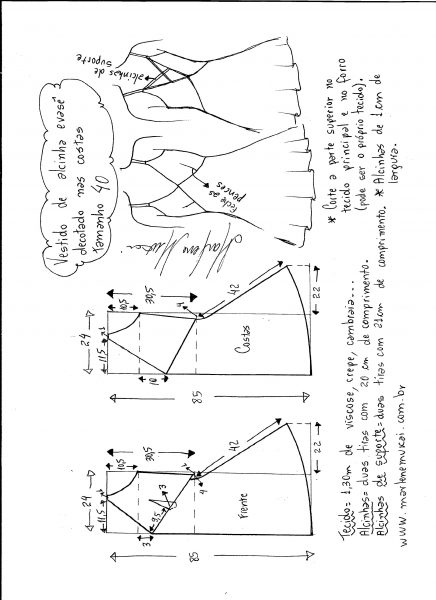 Vestido de alcinha evasê
decotado nas costas
tamanho 40
alcinhas de
suporte
Feche as
pences
Marlene Mukai
24
11,5
10,5
30,5
3
9,5
3
4
42
Frente
85
22
24
11,5
10,5
30,5
10
4
42
Costas
85
22
* Corte a parte superior no
tecido principal e no forro
(pode ser o próprio tecido).
Tecido= 1,30m de viscose, crepe, cambraia...
Alcinhas= duas tiras com 20 cm de comprimento.
Alcinhas de suporte= duas tiras com 21cm de comprimento. * Alcinhas de 1 cm de
largura.
www.marlenemukai.com.br